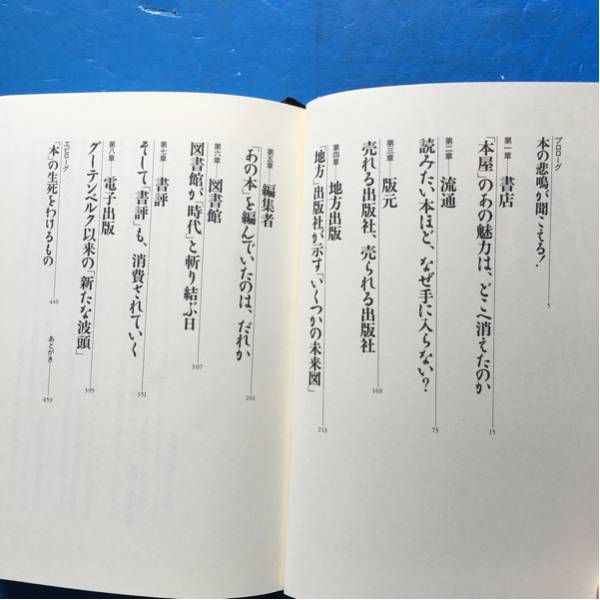 プロローグ
本の悲鳴が聞こえる! 5
第一章 書店
「本屋」のあの魅力は、どこへ消えたのか 15
第二章 流通
読みたい本ほど、なぜ手に入らない? 73
第三章 版元
売れる出版社、売られる出版社 163
第四章 地方出版
「地方」出版社が示す「いくつかの未来図」 213
第五章 編集者
「あの本」を編んでいたのは、だれか 261
第六章 図書館
図書館が「時代」と斬り結ぶ日 307
第七章 書評
そして「書評」も、消費されていく 351
第八章 電子出版
グーテンベルク以来の「新たな波頭」 395
エピローグ
「本」の生死をわけるもの 440
あとがき 459